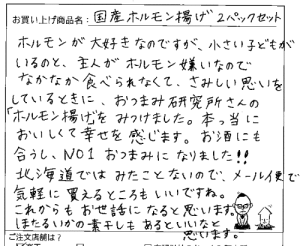 お買い上げ商品名：国産ホルモン揚げ2パックセット
ホルモンが大好きなのですが、小さい子どもが
いるのと、主人がホルモン嫌いなので
なかなか食べられなくて、さみしい思いを
しているときに、おつまみ研究所さんの
「ホルモン揚げ」をみつけました。本っ当に
おいしくて幸せを感じます。お酒にも
合うし、NO1おつまみになりました!!
北海道ではみたことないので、メール便で
気軽に買えるところもいいですね。
これからもお世話になると思います。
ほたるいかの素干しもあるといいなと
思います。
ご注文店舗は？